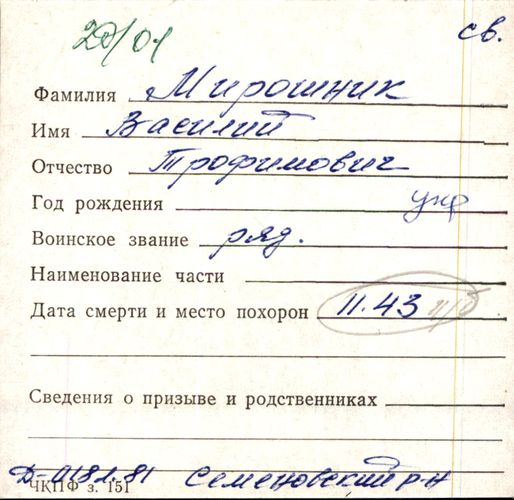 20/01 св.
Фамилия Мирошник
Имя Василий
Отчество Трофимович
Год рождения укр
Воинское звание ряд.
Наименование части
Дата смерти и место похорон 11.43
Сведения о призыве и родственниках
Д-0181.81 Семеновский р-н
ЧКПФ з. 151